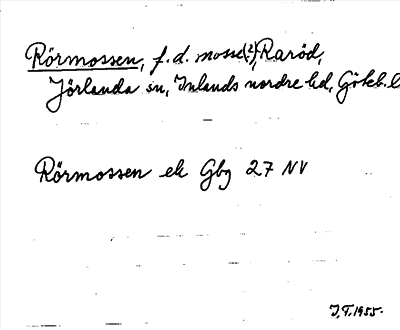 Rörmossen, f.d. mosse(?), Raröd,
Jörlanda sn, Inlands nordre hd, Göteb.l
Rörmossen ek Gbg 27 NV
J.T. 1955.